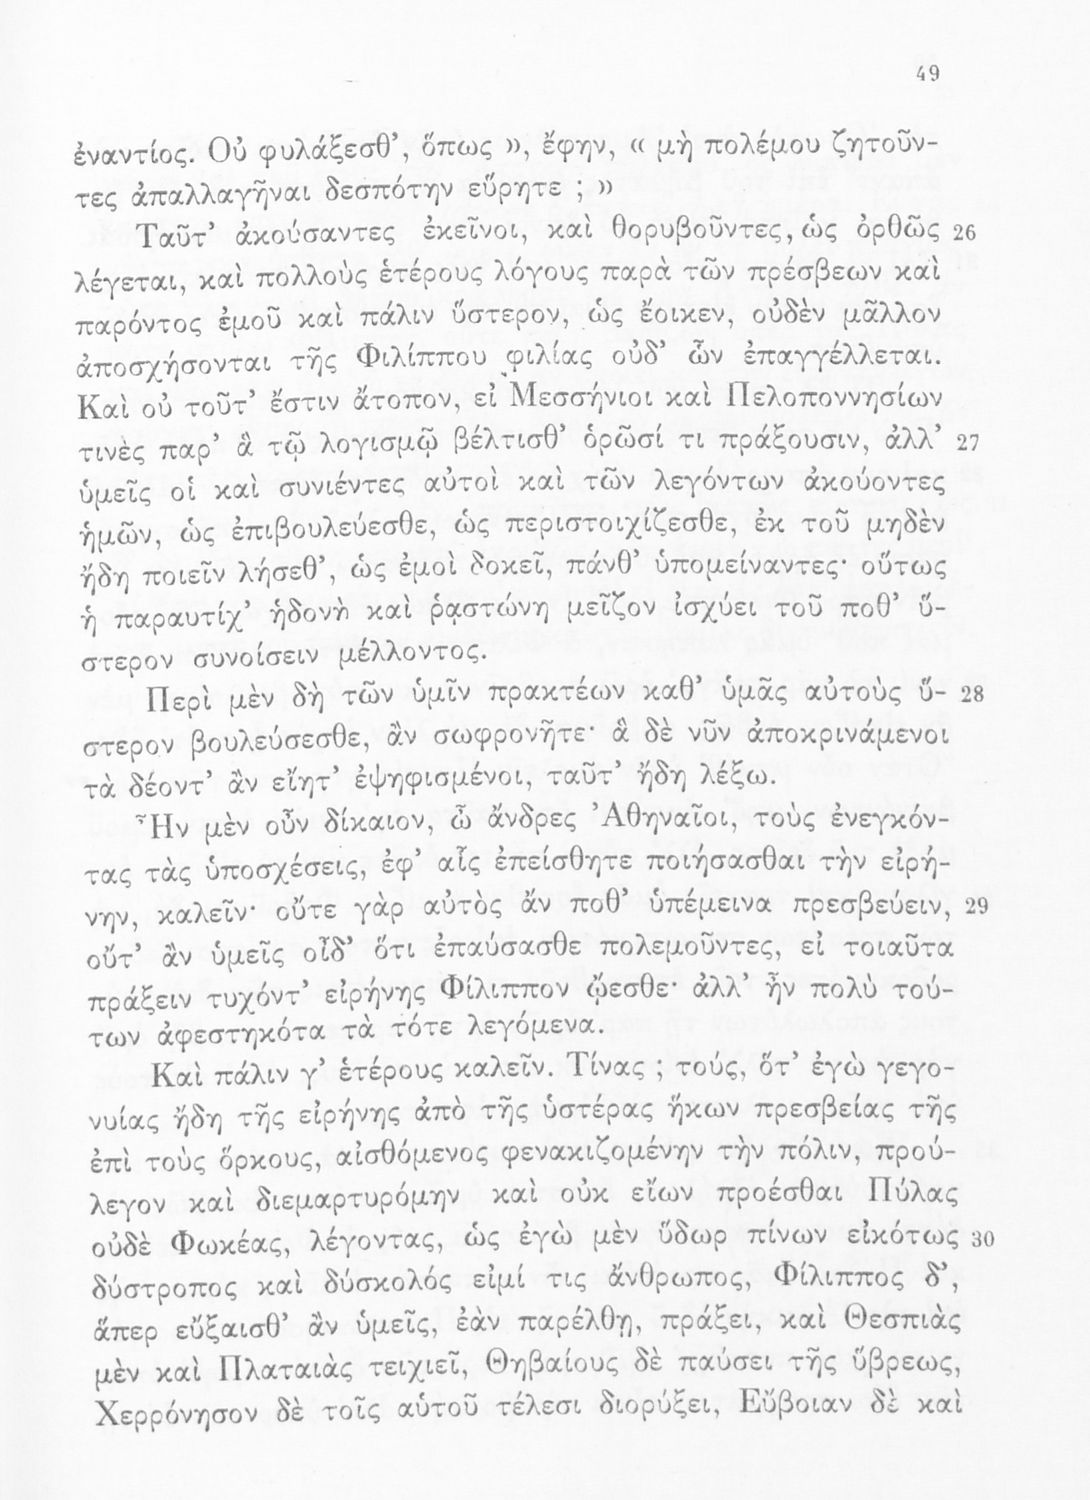 49
ἐναντίος. Οὐ φυλάξεσθ’, ὅπως », ἔφην, « μὴ πολέμου ζητοῦν-
τες ἀπαλλαγῆναι δεσπότην εὕρητε ; »
Ταῦτ’ ἀκούσαντες ἐκεῖνοι, καὶ θορυβοῦντες, ὡς ὀρθῶς 26
λέγεται, καὶ πολλοὺς ἑτέρους λόγους παρὰ τῶν πρέσβεων καὶ
παρόντος ἐμοῦ καὶ πάλιν ὕστερον, ὡς ἔοικεν, οὐδὲν μᾶλλον
ἀποσχήσονται τῆς Φιλίππου φιλίας οὐδ’ ὧν ἐπαγγέλλεται.
Καὶ οὐ τοῦτ’ ἔστιν ἄτοπον, εἰ Μεσσήνιοι καὶ Πελοποννησίων
τινὲς παρ’ ἃ τῷ λογισμῷ βέλτισθ’ ὁρῶσί τι πράξουσιν, ἀλλ’ 27
ὑμεῖς οἱ καὶ συνιέντες αὐτοὶ καὶ τῶν λεγόντων ἀκούοντες
ἡμῶν, ὡς ἐπιβουλεύεσθε, ὡς περιστοιχίζεσθε, ἐκ τοῦ μηδὲν
ἤδη ποιεῖν λήσεθ’, ὡς ἐμοὶ δοκεῖ, πάνθ’ ὑπομείναντες· οὕτως
ἡ παραυτίχ’ ἡδονὴ καὶ ῥᾳστώνη μεῖζον ἰσχύει τοῦ ποθ’ ὕ-
στερον συνοίσειν μέλλοντος.
Περὶ μὲν δὴ τῶν ὑμῖν πρακτέων καθ’ ὑμᾶς αὐτοὺς ὕ- 28
στερον βουλεύσεσθε, ἂν σωφρονῆτε· ἃ δὲ νῦν ἀποκρινάμενοι
τὰ δέοντ’ ἂν εἴητ’ ἐψηφισμένοι, ταῦτ’ ἤδη λέξω.
Ἦν μὲν οὖν δίκαιον, ὦ ἄνδρες Ἀθηναῖοι, τοὺς ἐνεγκόν-
τας τὰς ὑποσχέσεις, ἐφ’ αἷς ἐπείσθητε ποιήσασθαι τὴν εἰρή-
νην, καλεῖν· οὔτε γὰρ αὐτὸς ἄν ποθ’ ὑπέμεινα πρεσβεύειν, 29
οὔτ’ ἂν ὑμεῖς οἶδ’ ὅτι ἐπαύσασθε πολεμοῦντες, εἰ τοιαῦτα
πράξειν τυχόντ’ εἰρήνης Φίλιππον ᾤεσθε· ἀλλ’ ἦν πολὺ τού-
των ἀφεστηκότα τὰ τότε λεγόμενα.
Καὶ πάλιν γ’ ἑτέρους καλεῖν. Τίνας ; τούς, ὅτ’ ἐγὼ γεγο-
νυίας ἤδη τῆς εἰρήνης ἀπὸ τῆς ὑστέρας ἥκων πρεσβείας τῆς
ἐπὶ τοὺς ὅρκους, αἰσθόμενος φενακιζομένην τὴν πόλιν, πρού-
λεγον καὶ διεμαρτυρόμην καὶ οὐκ εἴων προέσθαι Πύλας
οὐδὲ Φωκέας, λέγοντας, ὡς ἐγὼ μὲν ὕδωρ πίνων εἰκότως 30
δύστροπος καὶ δύσκολός εἰμί τις ἄνθρωπος, Φίλιππος δ’,
ἅπερ εὔξαισθ’ ἂν ὑμεῖς, ἐὰν παρέλθῃ, πράξει, καὶ Θεσπιὰς
μὲν καὶ Πλαταιὰς τειχιεῖ, Θηβαίους δὲ παύσει τῆς ὕβρεως,
Χερρόνησον δὲ τοῖς αὑτοῦ τέλεσι διορύξει, Εὔβοιαν δὲ καὶ